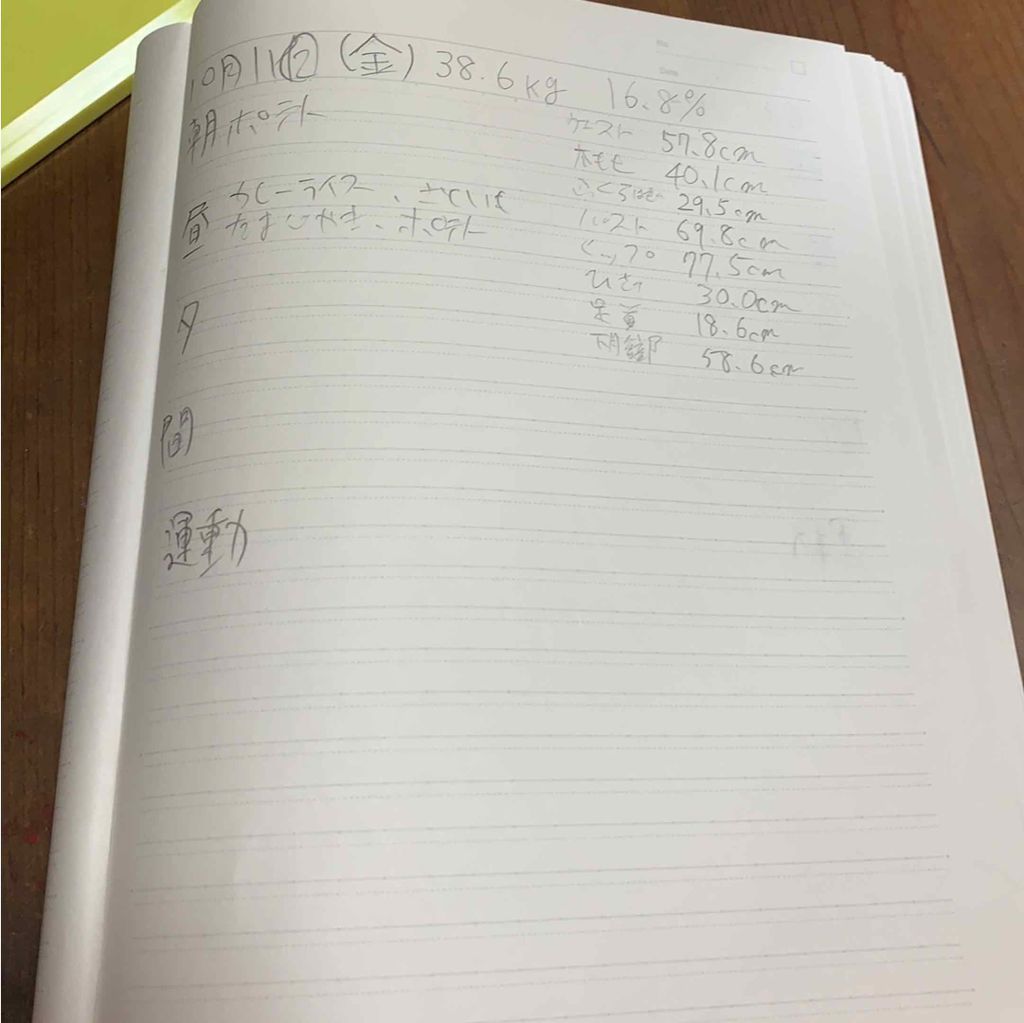 10月11日 (金) 38.6kg 16.8%
朝 ポテト
ウエスト 57.8cm
太もも 40.1cm
昼 カレーライス、
たまごやき、ポテト
ふくらはぎ 29.5cm
バスト 69.8cm
ヒップ 77.5cm
ひざ 30.0cm
夕
足首 18.6cm
下腹部 58.6cm
間
運動